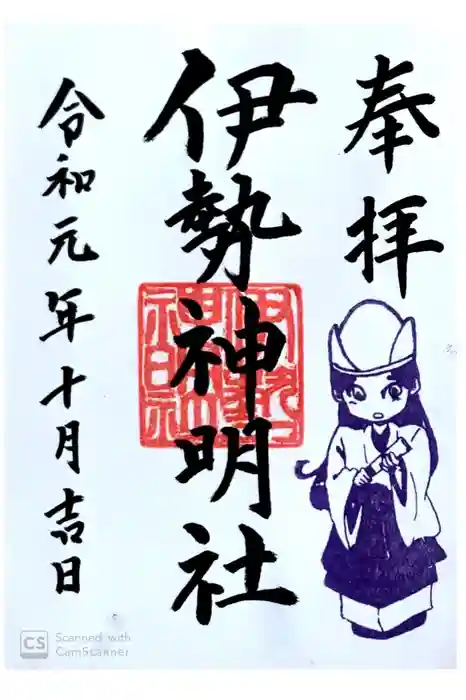 奉拝
伊勢神明社
令和元年十月吉日
伊勢神明社
CS Scanned with
CamScanner